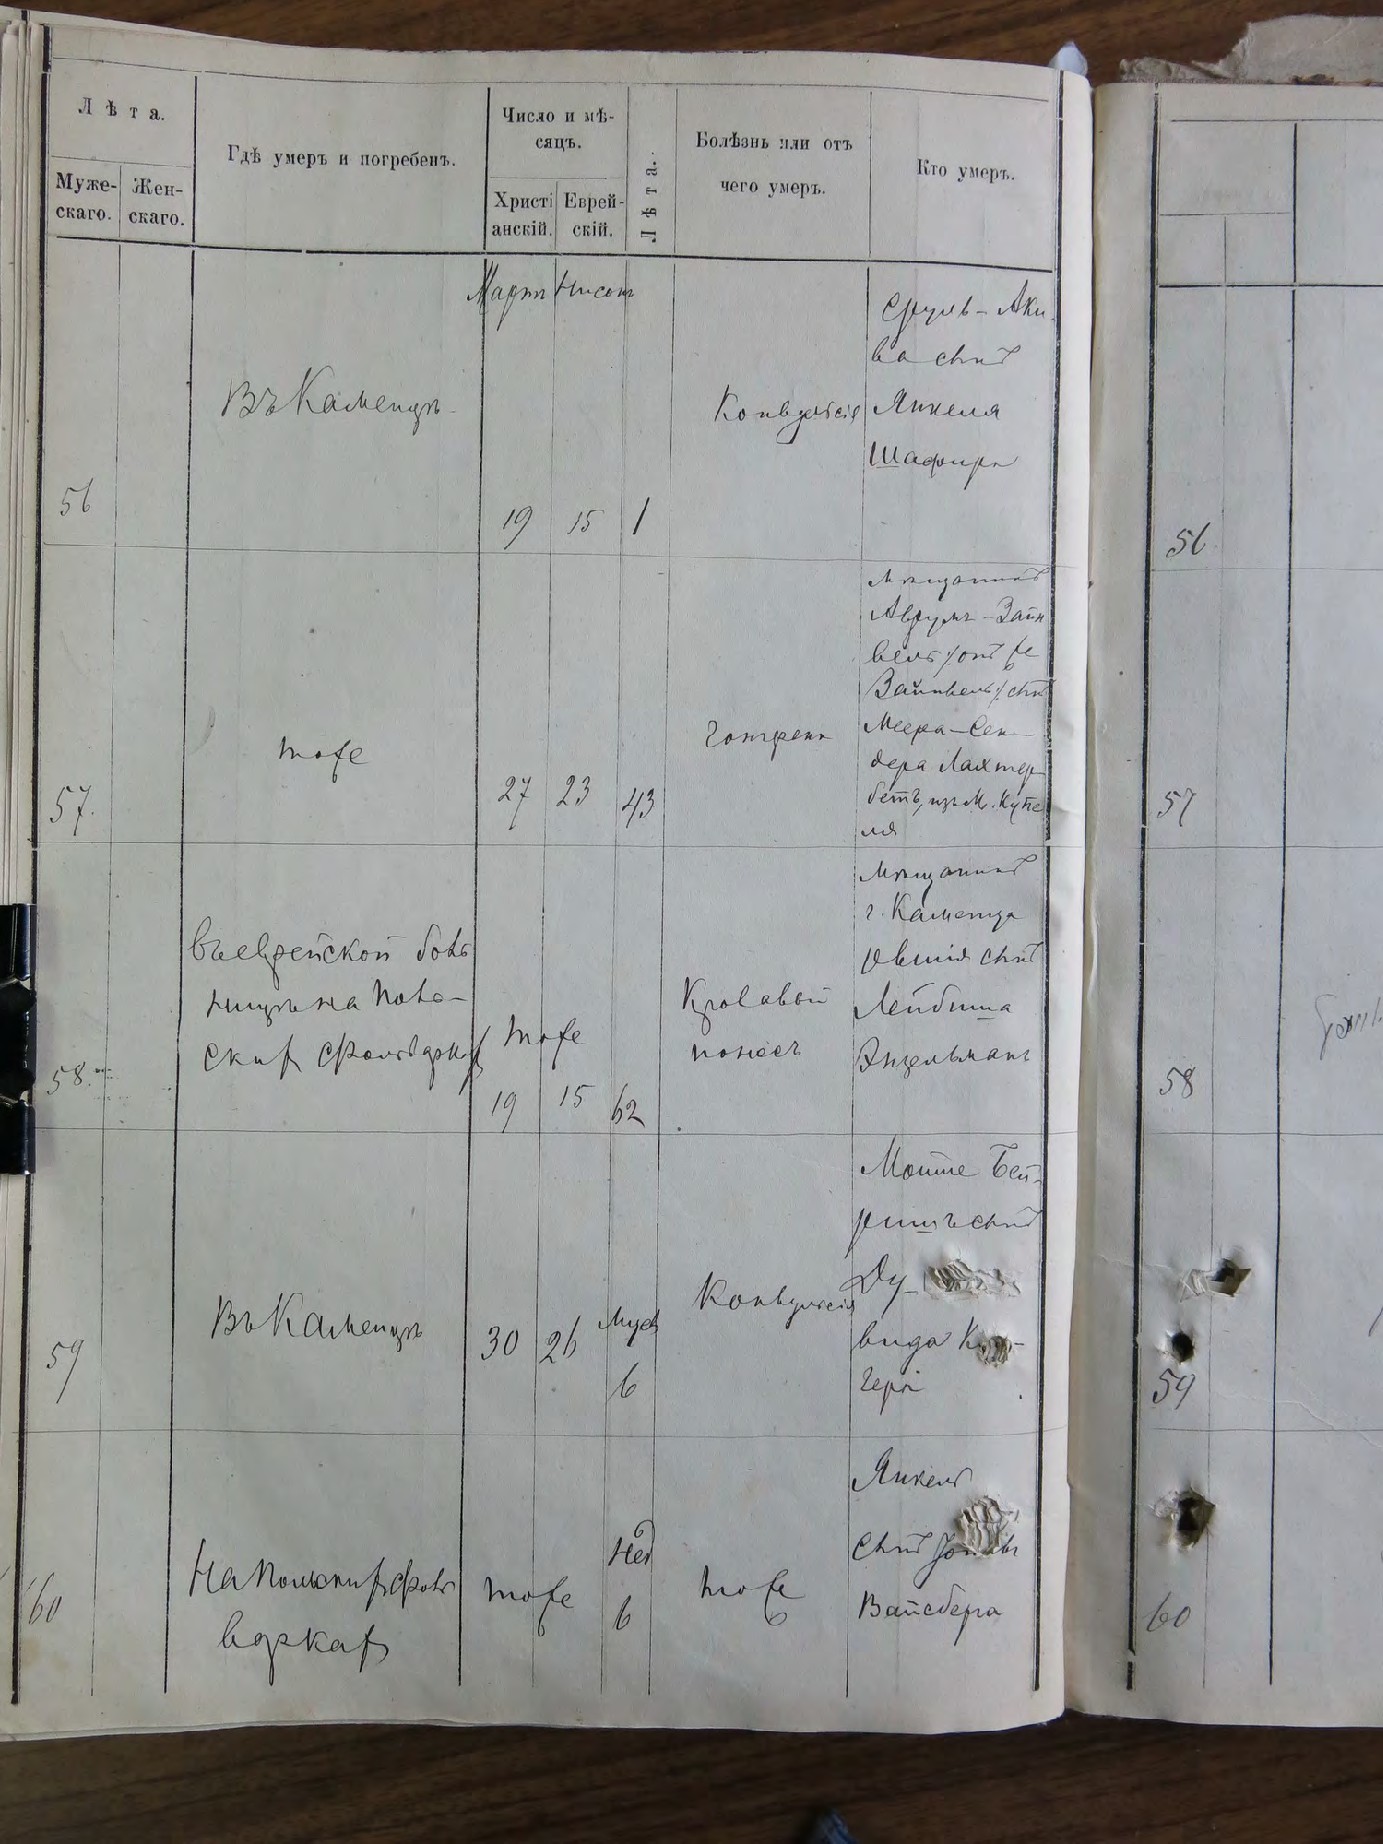 Лѣта.
Муже-
скаго.
Жен-
скаго.
Гдѣ умеръ и погребенъ.
Число и мѣ-
сяцъ.
Христі
анскій.
Еврей-
скій.
Лѣта.
Болѣзнь или отъ
чего умеръ.
Кто умеръ.
Мартъ Нисонъ
56
Въ Каменцѣ
19 15 1
Конвульсіе
Сруль-Аки-
ва сынъ
Янкеля
Шафира
57
тоже
27 23 43
мѣщанинъ
Аврумъ-Зайн
вель
Меера-Сен-
дера Лахтер-
бетъ, изъ м. Купе
ля
58
въ еврейской боль
ницѣ на Поль-
скихъ фольваркахъ
тоже
19 15 62
Кровавый
поносъ
Мѣщанинъ
г. Каменца
Овшія сынъ
Лейбиша
59
Въ Каменцѣ
30 26
6
Конвульсія
Мошке Бей-
ришъ сынъ
Ду-
вида
гера
60
На Польскихъ фоль
варкахъ
тоже
Нед
6
тоже
Янкель
сынъ
Вайсберга
56
57
58
59
60